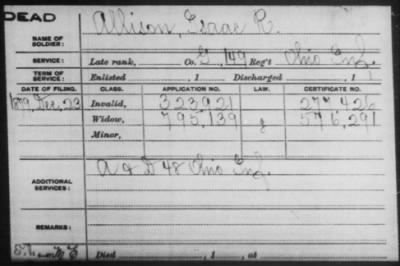 DEAD
NAME OF SOLDIER: Allison, Isaac R.
SERVICE: Late rank, Co. G, 149 Reg't Ohio Inf.
TERM OF SERVICE: Enlisted , 1 Discharged , 1
DATE OF FILING. CLASS. APPLICATION NO. LAW. CERTIFICATE NO.
1879, Dec. 23 Invalid, 323921 277426
Widow, 795,139 576,291
Minor,
ADDITIONAL SERVICES: A & D 48 Ohio Inf.
REMARKS:
Died , 1 , at